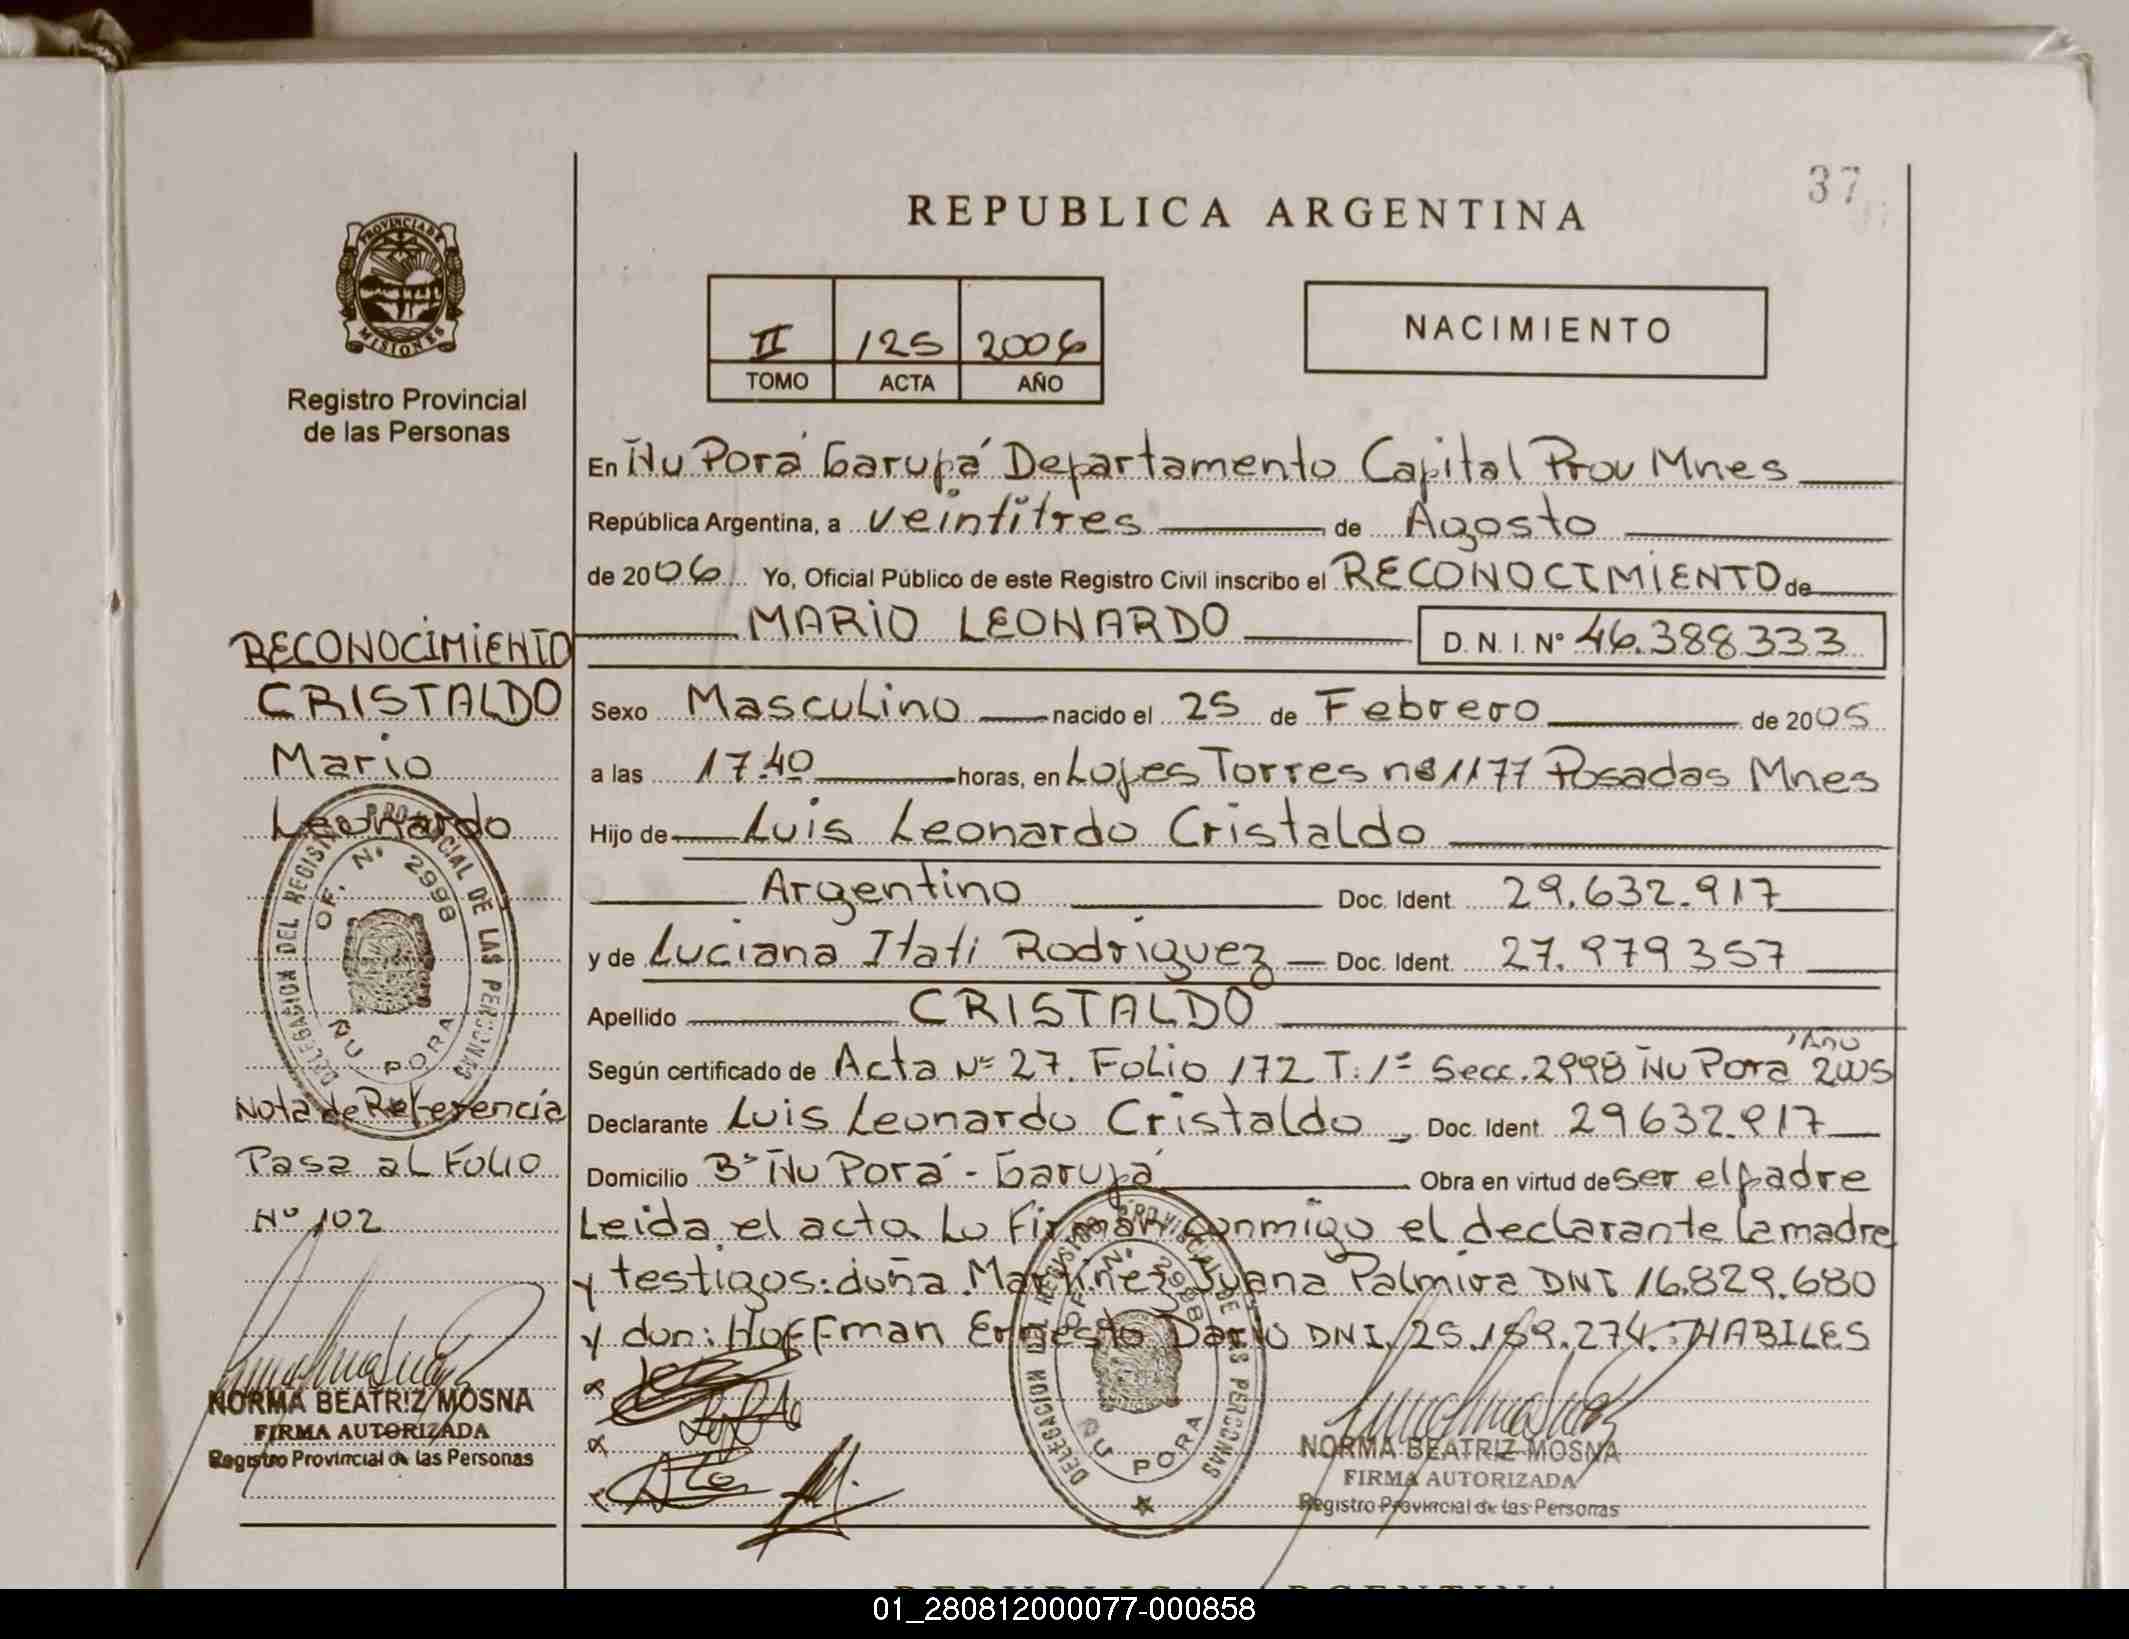 37
REPUBLICA ARGENTINA
PROVINCIA DE
MISIONES
Registro Provincial
de las Personas
II 125 2006
TOMO ACTA AÑO
NACIMIENTO
En Ñu Porá Garupá Departamento Capital Prov Mnes
República Argentina, a veintitres de Agosto
de 2006 Yo, Oficial Público de este Registro Civil inscribo el RECONOCIMIENTO de
MARIO LEONARDO D. N. I. Nº 46.388.333
Sexo Masculino nacido el 25 de Febrero de 2005
a las 17.40 horas, en Lopes Torres nº 1177 Posadas Mnes
Hijo de Luis Leonardo Cristaldo
Argentino Doc. Ident. 29.632.917
y de Luciana Itati Rodriguez Doc. Ident. 27.979357
Apellido CRISTALDO
Según certificado de Acta Nº 27. Folio 172 T. 1º Secc. 2998 Ñu Porá Año 2005
Declarante Luis Leonardo Cristaldo Doc. Ident. 29632.917
Domicilio Bº Ñu Porá - Garupá Obra en virtud de ser el padre
Leida el acta lo Firman conmigo el declarante la madre
y testigos: doña Martinez Juana Palmira DNI 16.829.680
y don: Hoffman Ernesto Dario DNI. 25.159.274. HABILES
RECONOCIMIENTO
CRISTALDO
Mario
Leonardo
DELEGACION DEL REGISTRO PROVINCIAL DE LAS PERSONAS
OF. Nº 2998
ÑU PORA
Nota de Referencia
Pasa al Folio
Nº 102
NORMA BEATRIZ MOSNA
FIRMA AUTORIZADA
Registro Provincial de las Personas
DELEGACION DEL REGISTRO PROVINCIAL DE LAS PERSONAS
OF. Nº 2998
ÑU PORA
NORMA BEATRIZ MOSNA
FIRMA AUTORIZADA
Registro Provincial de las Personas
REPUBLICA ARGENTINA
01_280812000077-000858